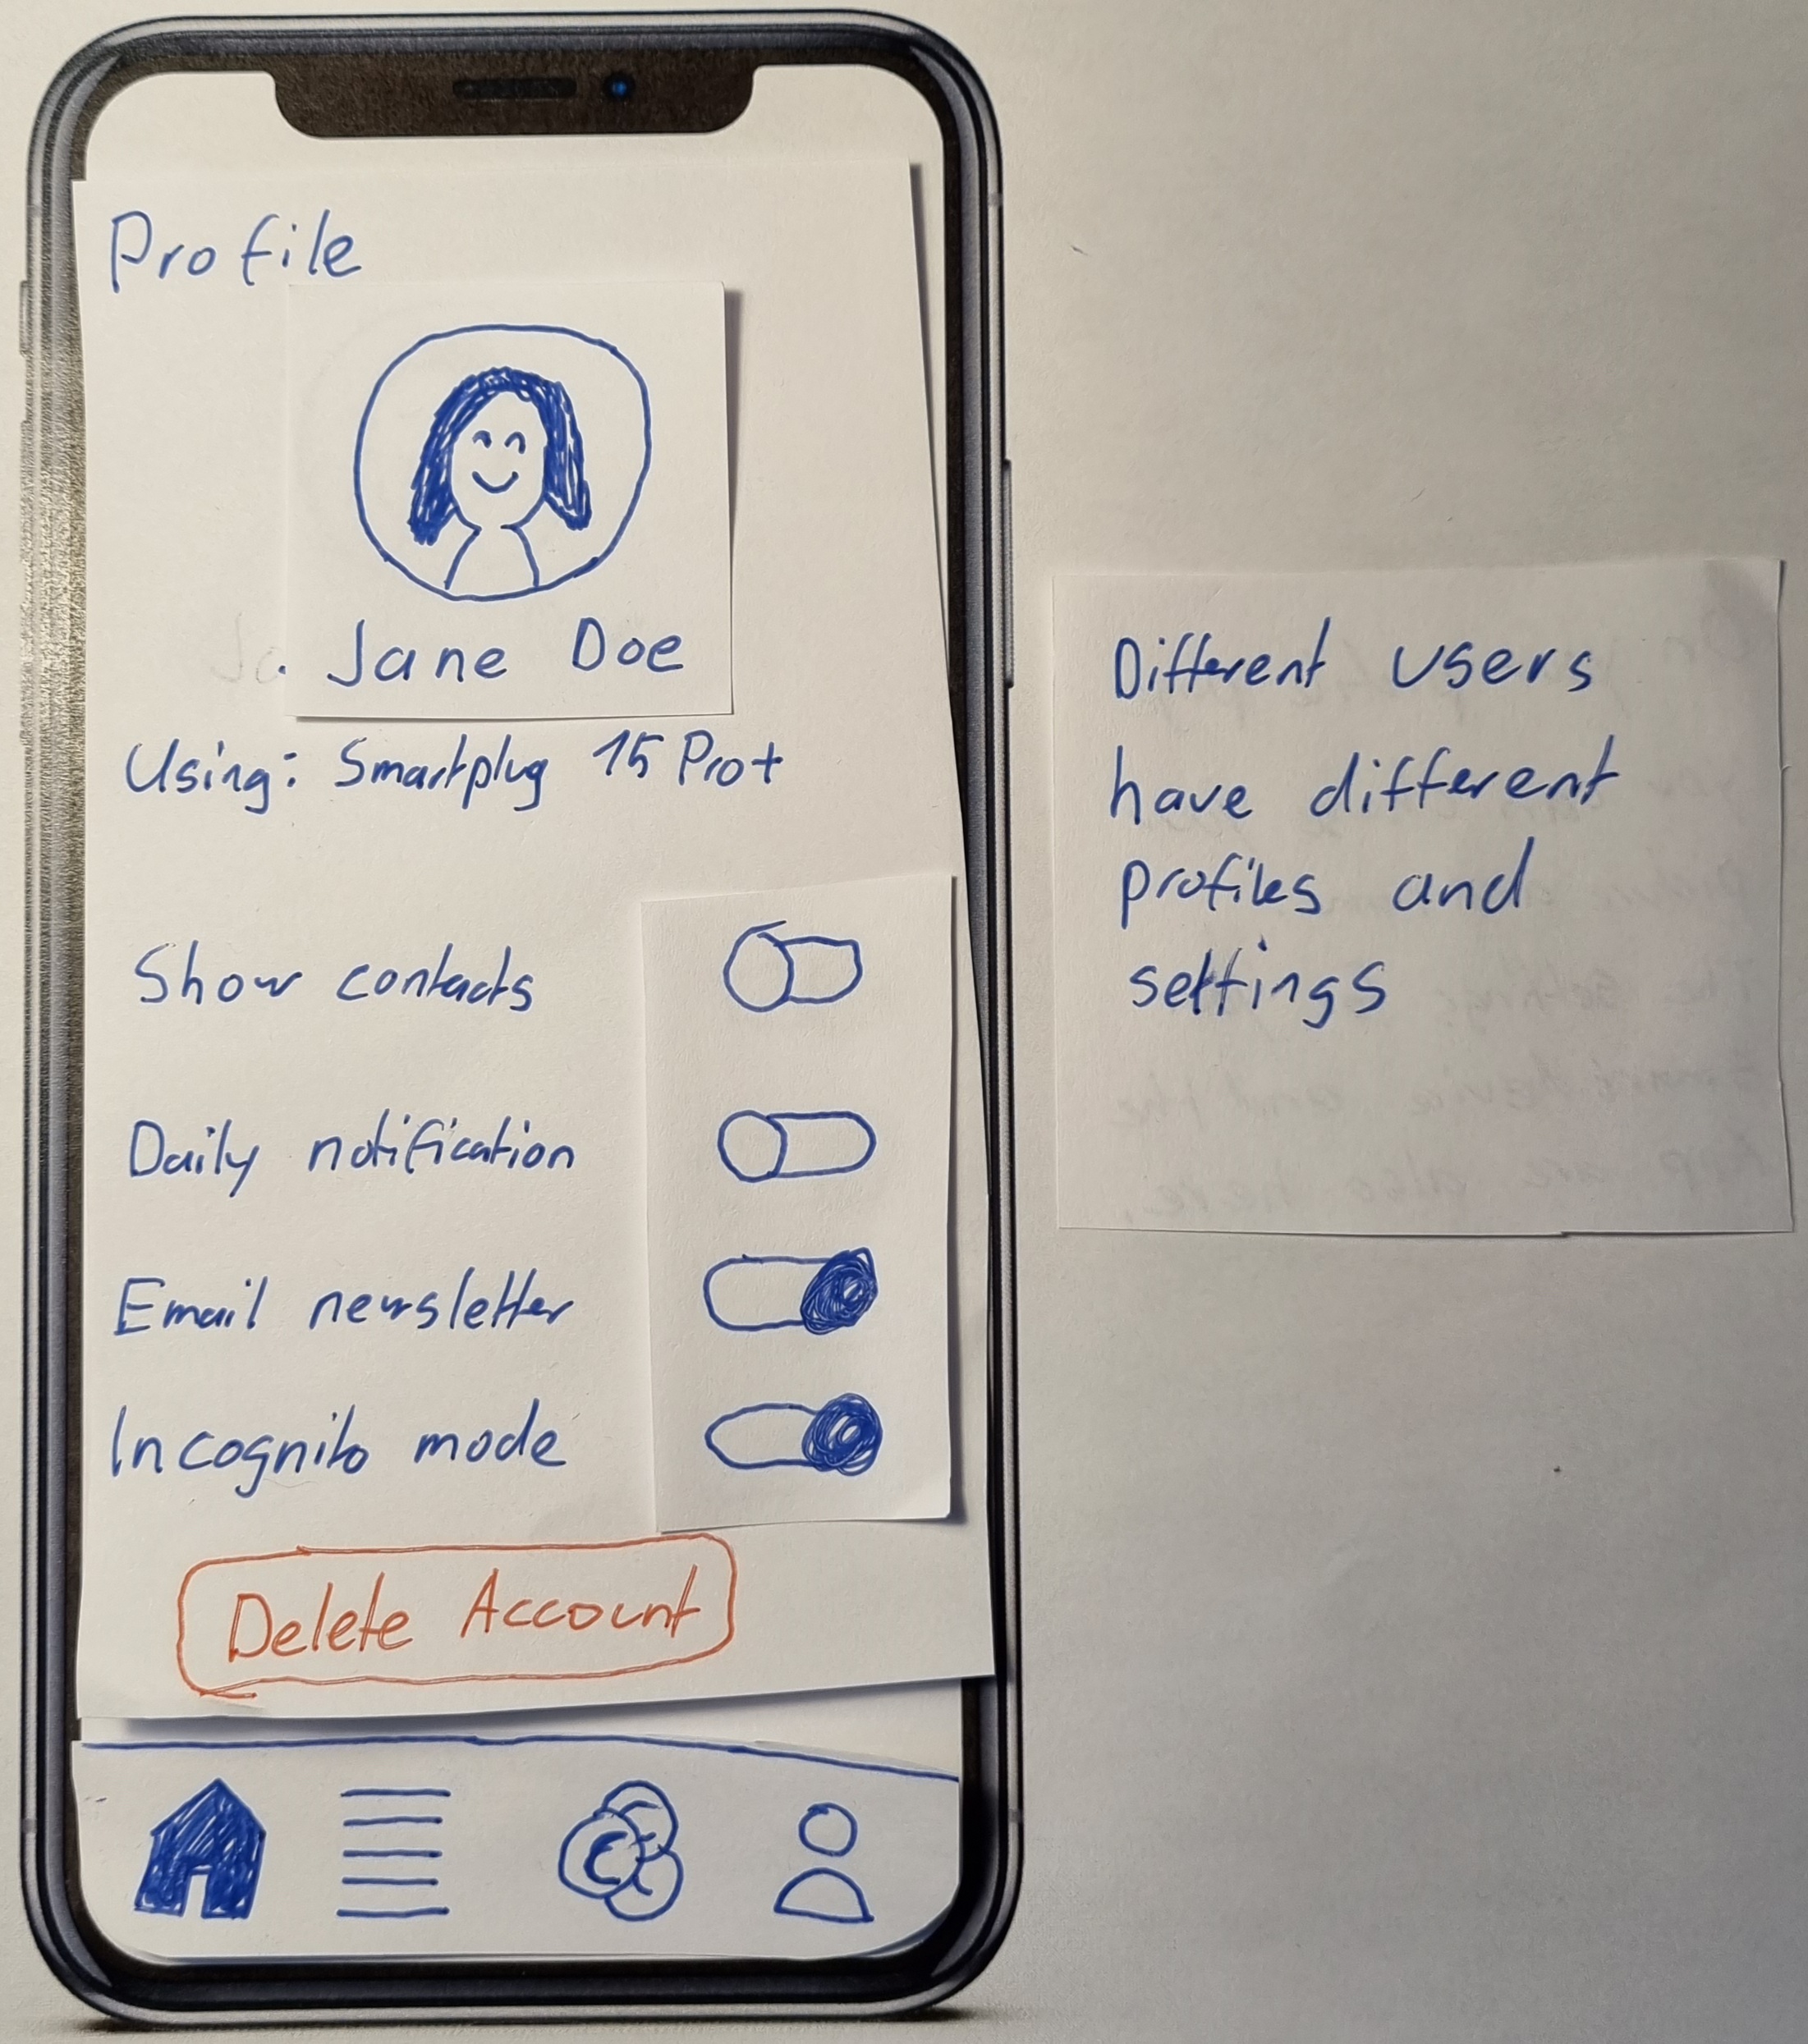 Profile
Jane Doe
Using: Smartplug 15 Pro+
Show contacts
Daily notification
Email newsletter
Incognito mode
Delete Account
Different users
have different
profiles and
settings